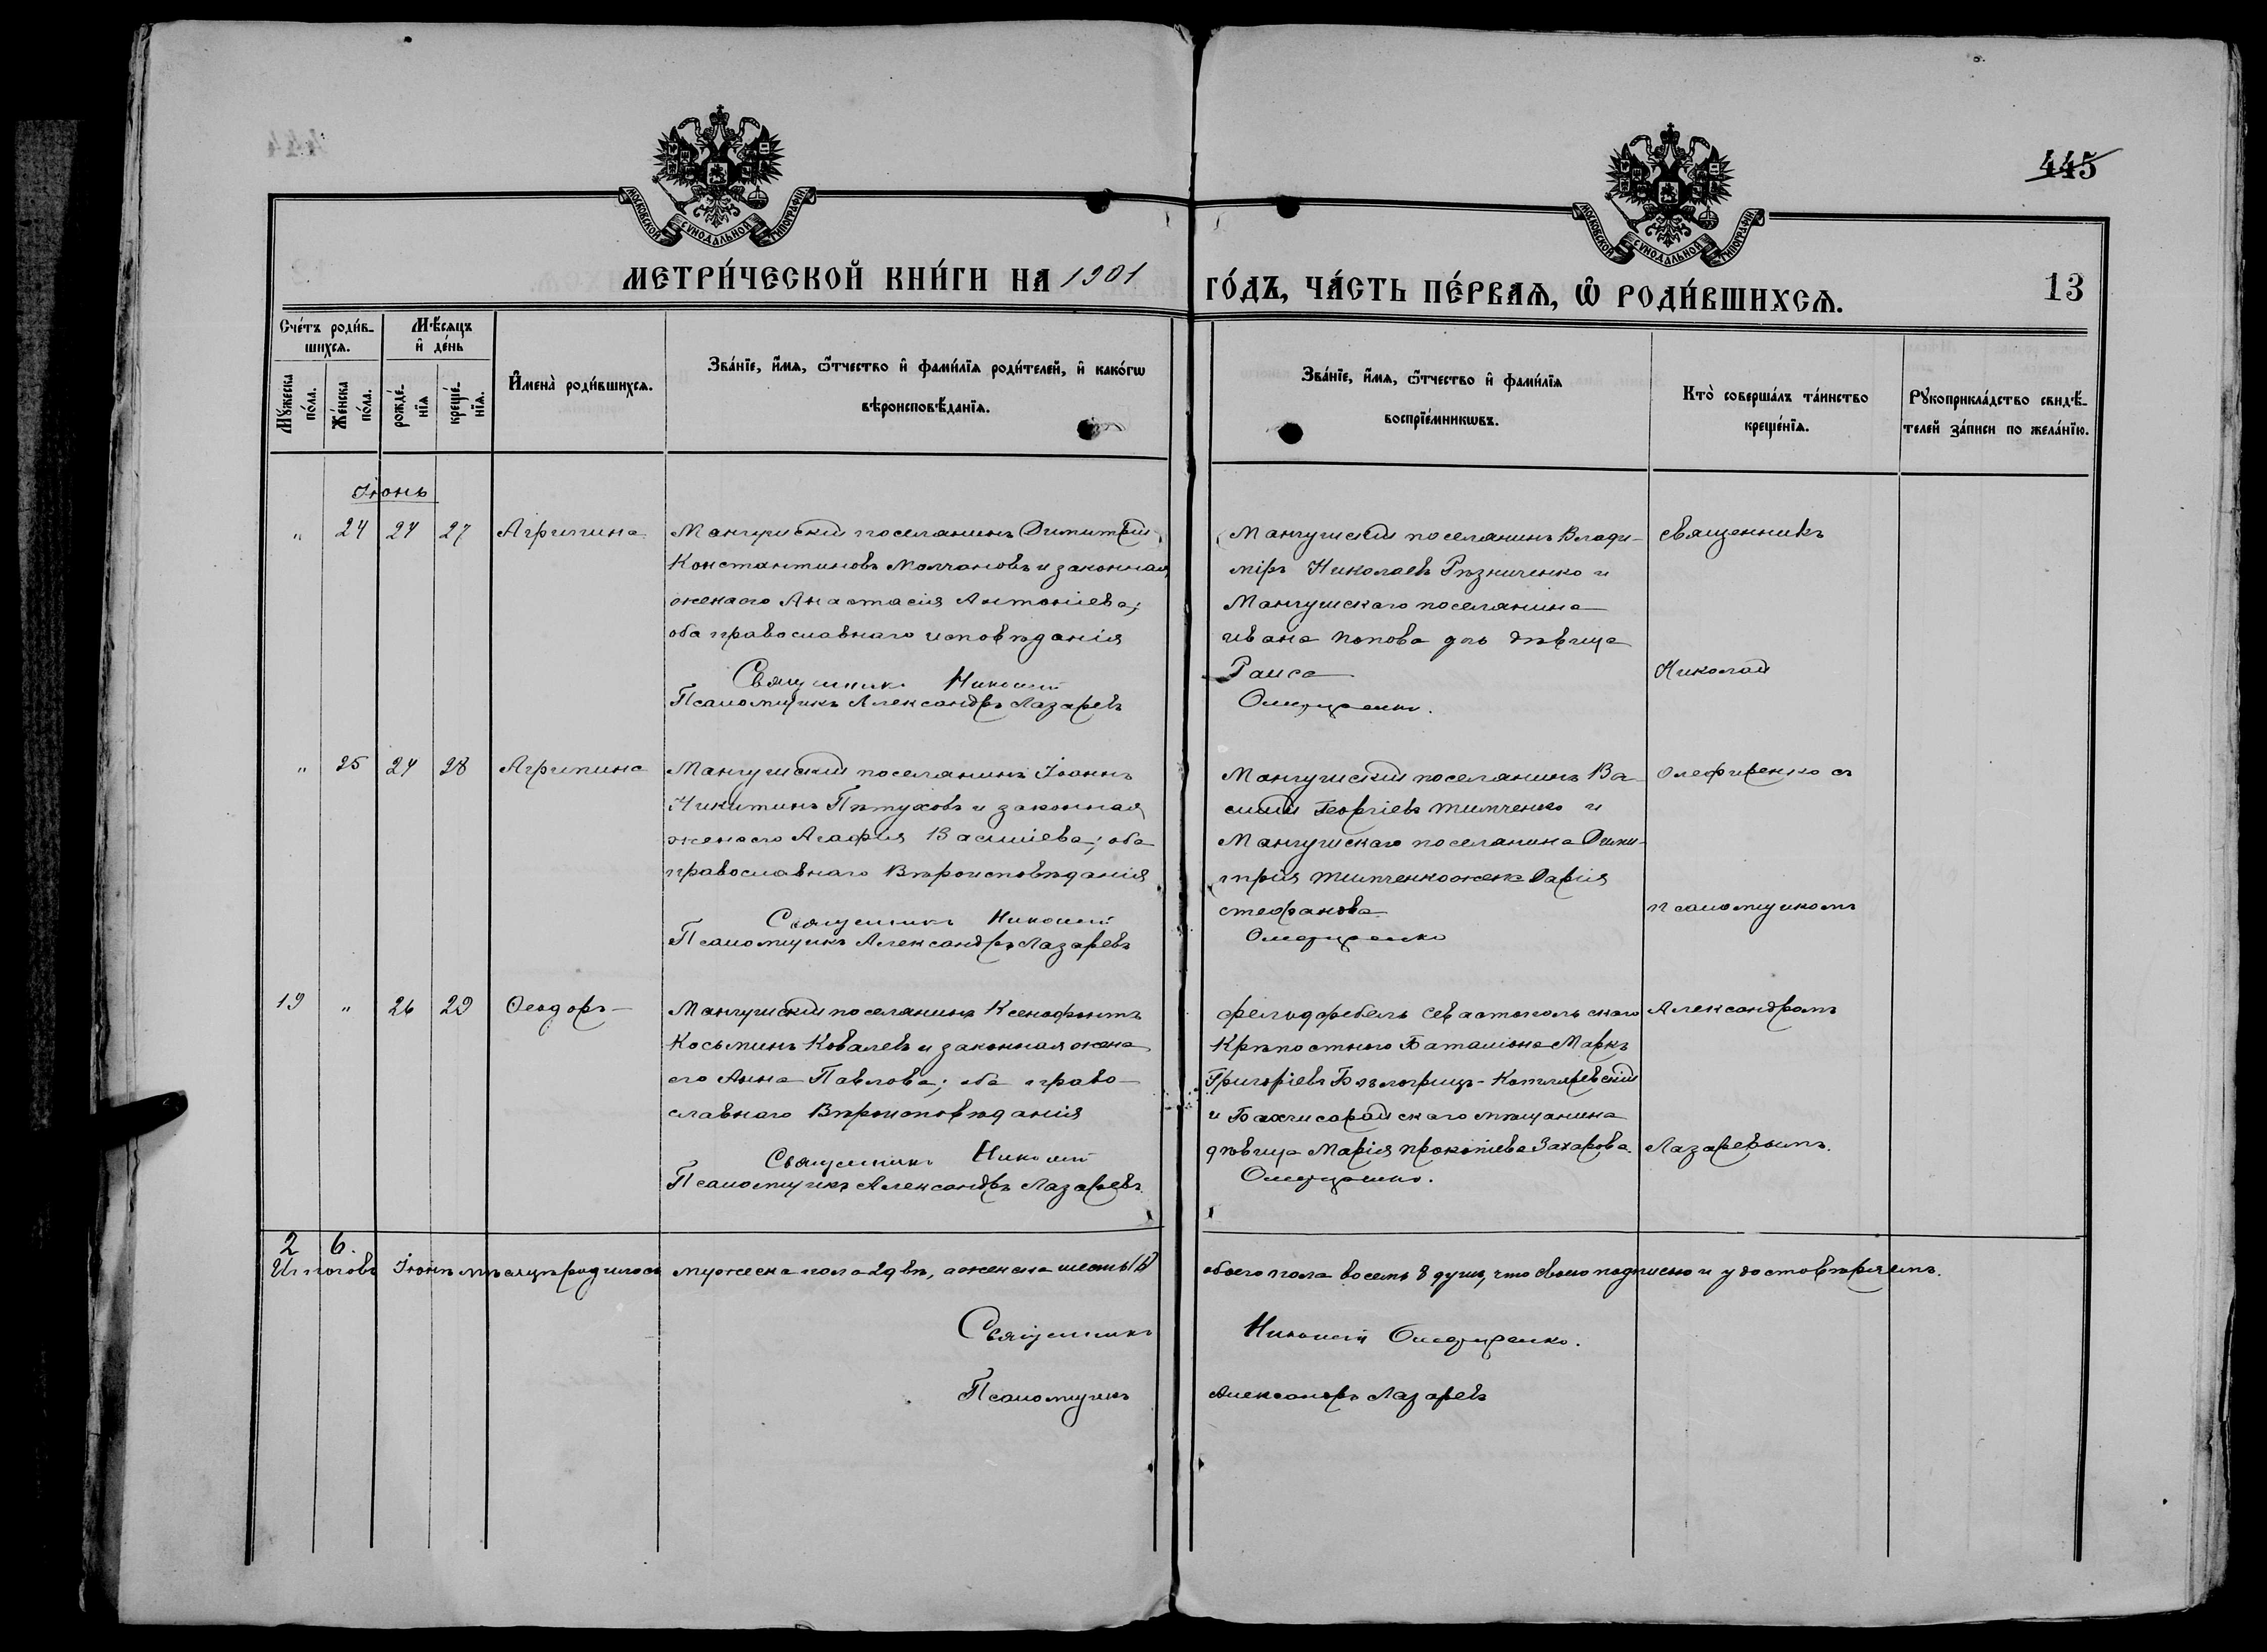 445
МОСКОВСКОЙ СѴНОДАЛЬНОЙ ТИПОГРАФІИ
МОСКОВСКОЙ СѴНОДАЛЬНОЙ ТИПОГРАФІИ
МЕТРИ́ЧЕСКОЙ КНИ́ГИ НА 1901 ГО́ДЪ, ЧА́СТЬ ПЕ́РВАѦ, Ѽ РОДИ́ВШИХСѦ.
13
Сче́тъ роди́в-
шихсѧ.
Мѣ́сяцъ
и҆ де́нь
Мꙋ́жеска
по́ла.
Же́нска
по́ла.
рожде́-
нїѧ
креще́-
нїѧ.
И҆мена̀ роди́вшихсѧ.
Зва́нїе, и҆́мѧ, ѻ҆́тчество и҆ фами́лїѧ роди́телей, и҆ како́гѡ
вѣроисповѣ́данїѧ.
Зва́нїе, и҆́мѧ, ѻ҆́тчество и҆ фами́лїѧ
воспрїе́мникѡвъ.
Кто̀ соверша́лъ та́инство
креще́нїѧ.
Рꙋкоприкла́дство свидѣ́-
телей за́писи по жела́нїю.
Іюнь
" 24 24 27 Агрипина
Мангушскій поселянинъ Димитрій
Константиновъ Молчановъ и законная
жена его Анастасія Антоніева;
оба православнаго исповѣданія
Священникъ Николай
Псаломщикъ Александръ Лазаревъ
Мангушскій поселянинъ Влади-
міръ Николаевъ Рѣзниченко и
Мангушскаго поселянина
Ивана Попова дочь дѣвица
Раиса
Олефиренко.
Священникъ
Николай
" 25 24 28 Агрипина
Мангушскій поселянинъ Іоаннъ
Никитинъ Пѣтуховъ и законная
жена его Агафія Василіева; оба
православнаго Вѣроисповѣданія
Священникъ Николай
Псаломщикъ Александръ Лазаревъ
Мангушскій поселянинъ Ва-
силій Георгіевъ Тимченко и
Мангушскаго поселянина Дими-
трія Тимченко жена Дарія
Стефанова
Олефиренко
Олефиренко съ
псаломщикомъ
19 " 26 29 Ѳеодоръ
Мангушскій поселянинъ Ксенофонтъ
Косьминъ Ковалевъ и законная жена
его Анна Павлова; оба право-
славнаго Вѣроисповѣданія
Священникъ Николай
Псаломщикъ Александръ Лазаревъ.
фельдфебель Севастопольскаго
Крѣпостного Баталіона Маркъ
Григоріевъ Бѣлогрицъ-Котляревскій
и Бахчисарайскаго мѣщанина
дѣвица Марія Прокопіева Захарова.
Олефиренко.
Александромъ
Лазаревымъ.
2 6.
Итогов Іюнѣ мѣсяцѣ родилось мужеска пола 2 двѣ, а женска шесть (6) обоего пола восемь 8 душъ, что своею подписью и удостовѣряемъ.
Священникъ Николай Олефиренко.
Псаломщикъ Александръ Лазаревъ